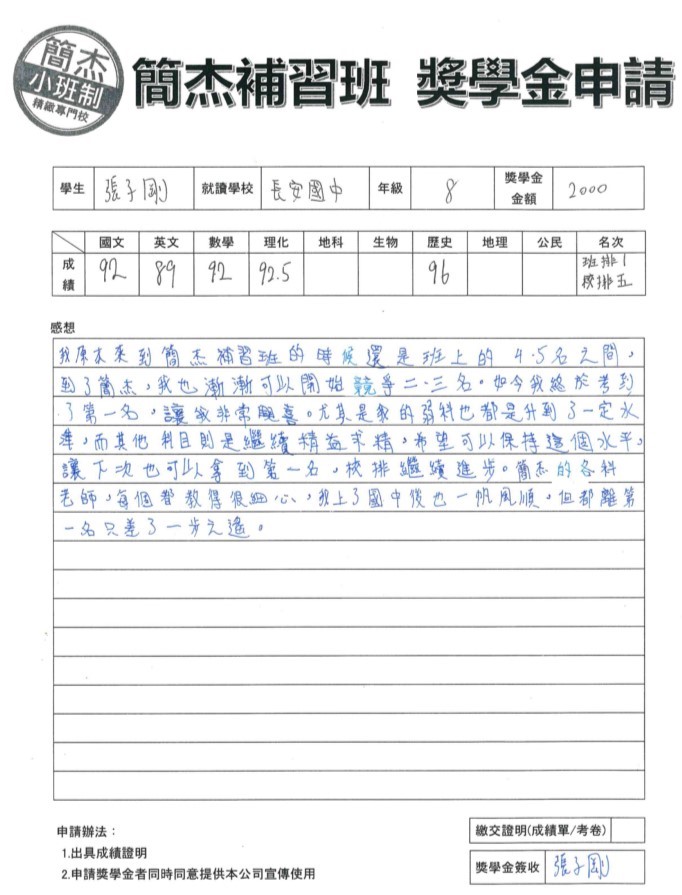 簡杰
小班制
精緻專門校
簡杰補習班 獎學金申請
學生 張子剛 就讀學校 長安國中 年級 8 獎學金金額 2000
國文 英文 數學 理化 地科 生物 歷史 地理 公民 名次
成績 92 89 92 92.5 96 班排1 校排五
感想
我原本來到簡杰補習班的時候還是班上的4.5名之間,
到了簡杰,我也漸漸可以開始競爭二.三名。如今我終於考到
了第一名,讓我非常興喜。尤其是我的弱科也都是升到了一定水
準,而其他科目則是繼續精益求精,希望可以保持這個水平,
讓下次也可以拿到第一名,校排繼續進步。簡杰的各科
老師,每個都教得很細心,我上了國中後也一帆風順,但都離第
一名只差了一步之遙。
申請辦法:
1.出具成績證明
2.申請獎學金者同時同意提供本公司宣傳使用
繳交證明(成績單/考卷)
獎學金簽收 張子剛